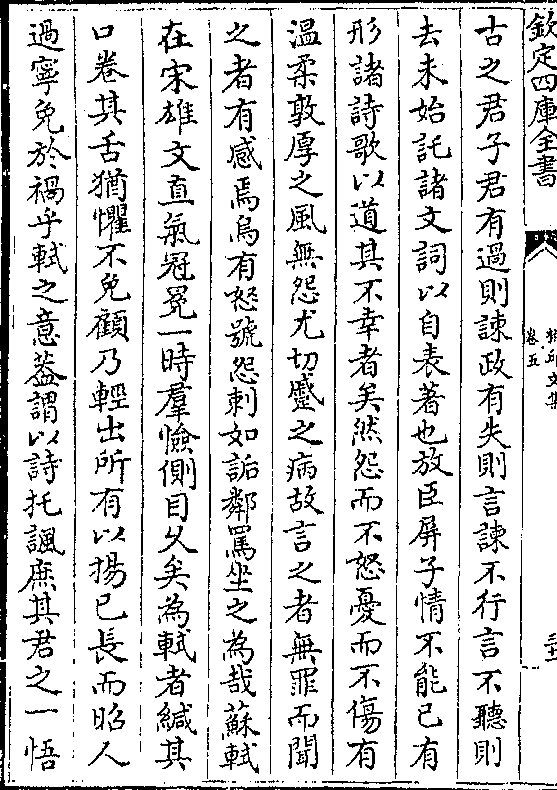 欽定四庫全書
卷五
古之君子君有過則諫政有失則言諫不行言不聽則
去未始託諸文詞以自表著也放臣屏子情不能已有
形諸詩歌以道其不幸者矣然怨而不怒憂而不傷有
溫柔敦厚之風無怨尤切蹙之病故言之者無罪而聞
之者有感焉烏有怒號怨刺如詬鄰罵坐之為哉蘇軾
在宋雄文直氣冠冕一時羣憸側目久矣為軾者緘其
口卷其舌猶懼不免顧乃輕出所有以揚已長而昭人
過寧免於禍乎軾之意葢謂以詩托諷庶其君之一悟